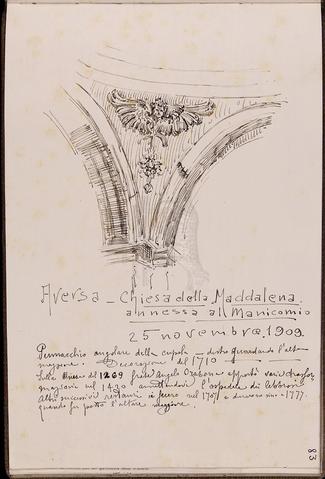 Aversa - Chiesa della Maddalena
annessa al Manicomio
25 novembre. 1909
Pennacchio angolare della cupola - destro guardando l'altar
maggiore. Decorazione del 1710
Sulla chiesa del 1269 frate Angelo Orabona apportò varie
maggiori nel 1430 l'ospedale dei lebbrosi
Altri successivi restauri si fecero nel 1707 e durarono sino a 1777.
quando fu posto l'altare maggiore.
83